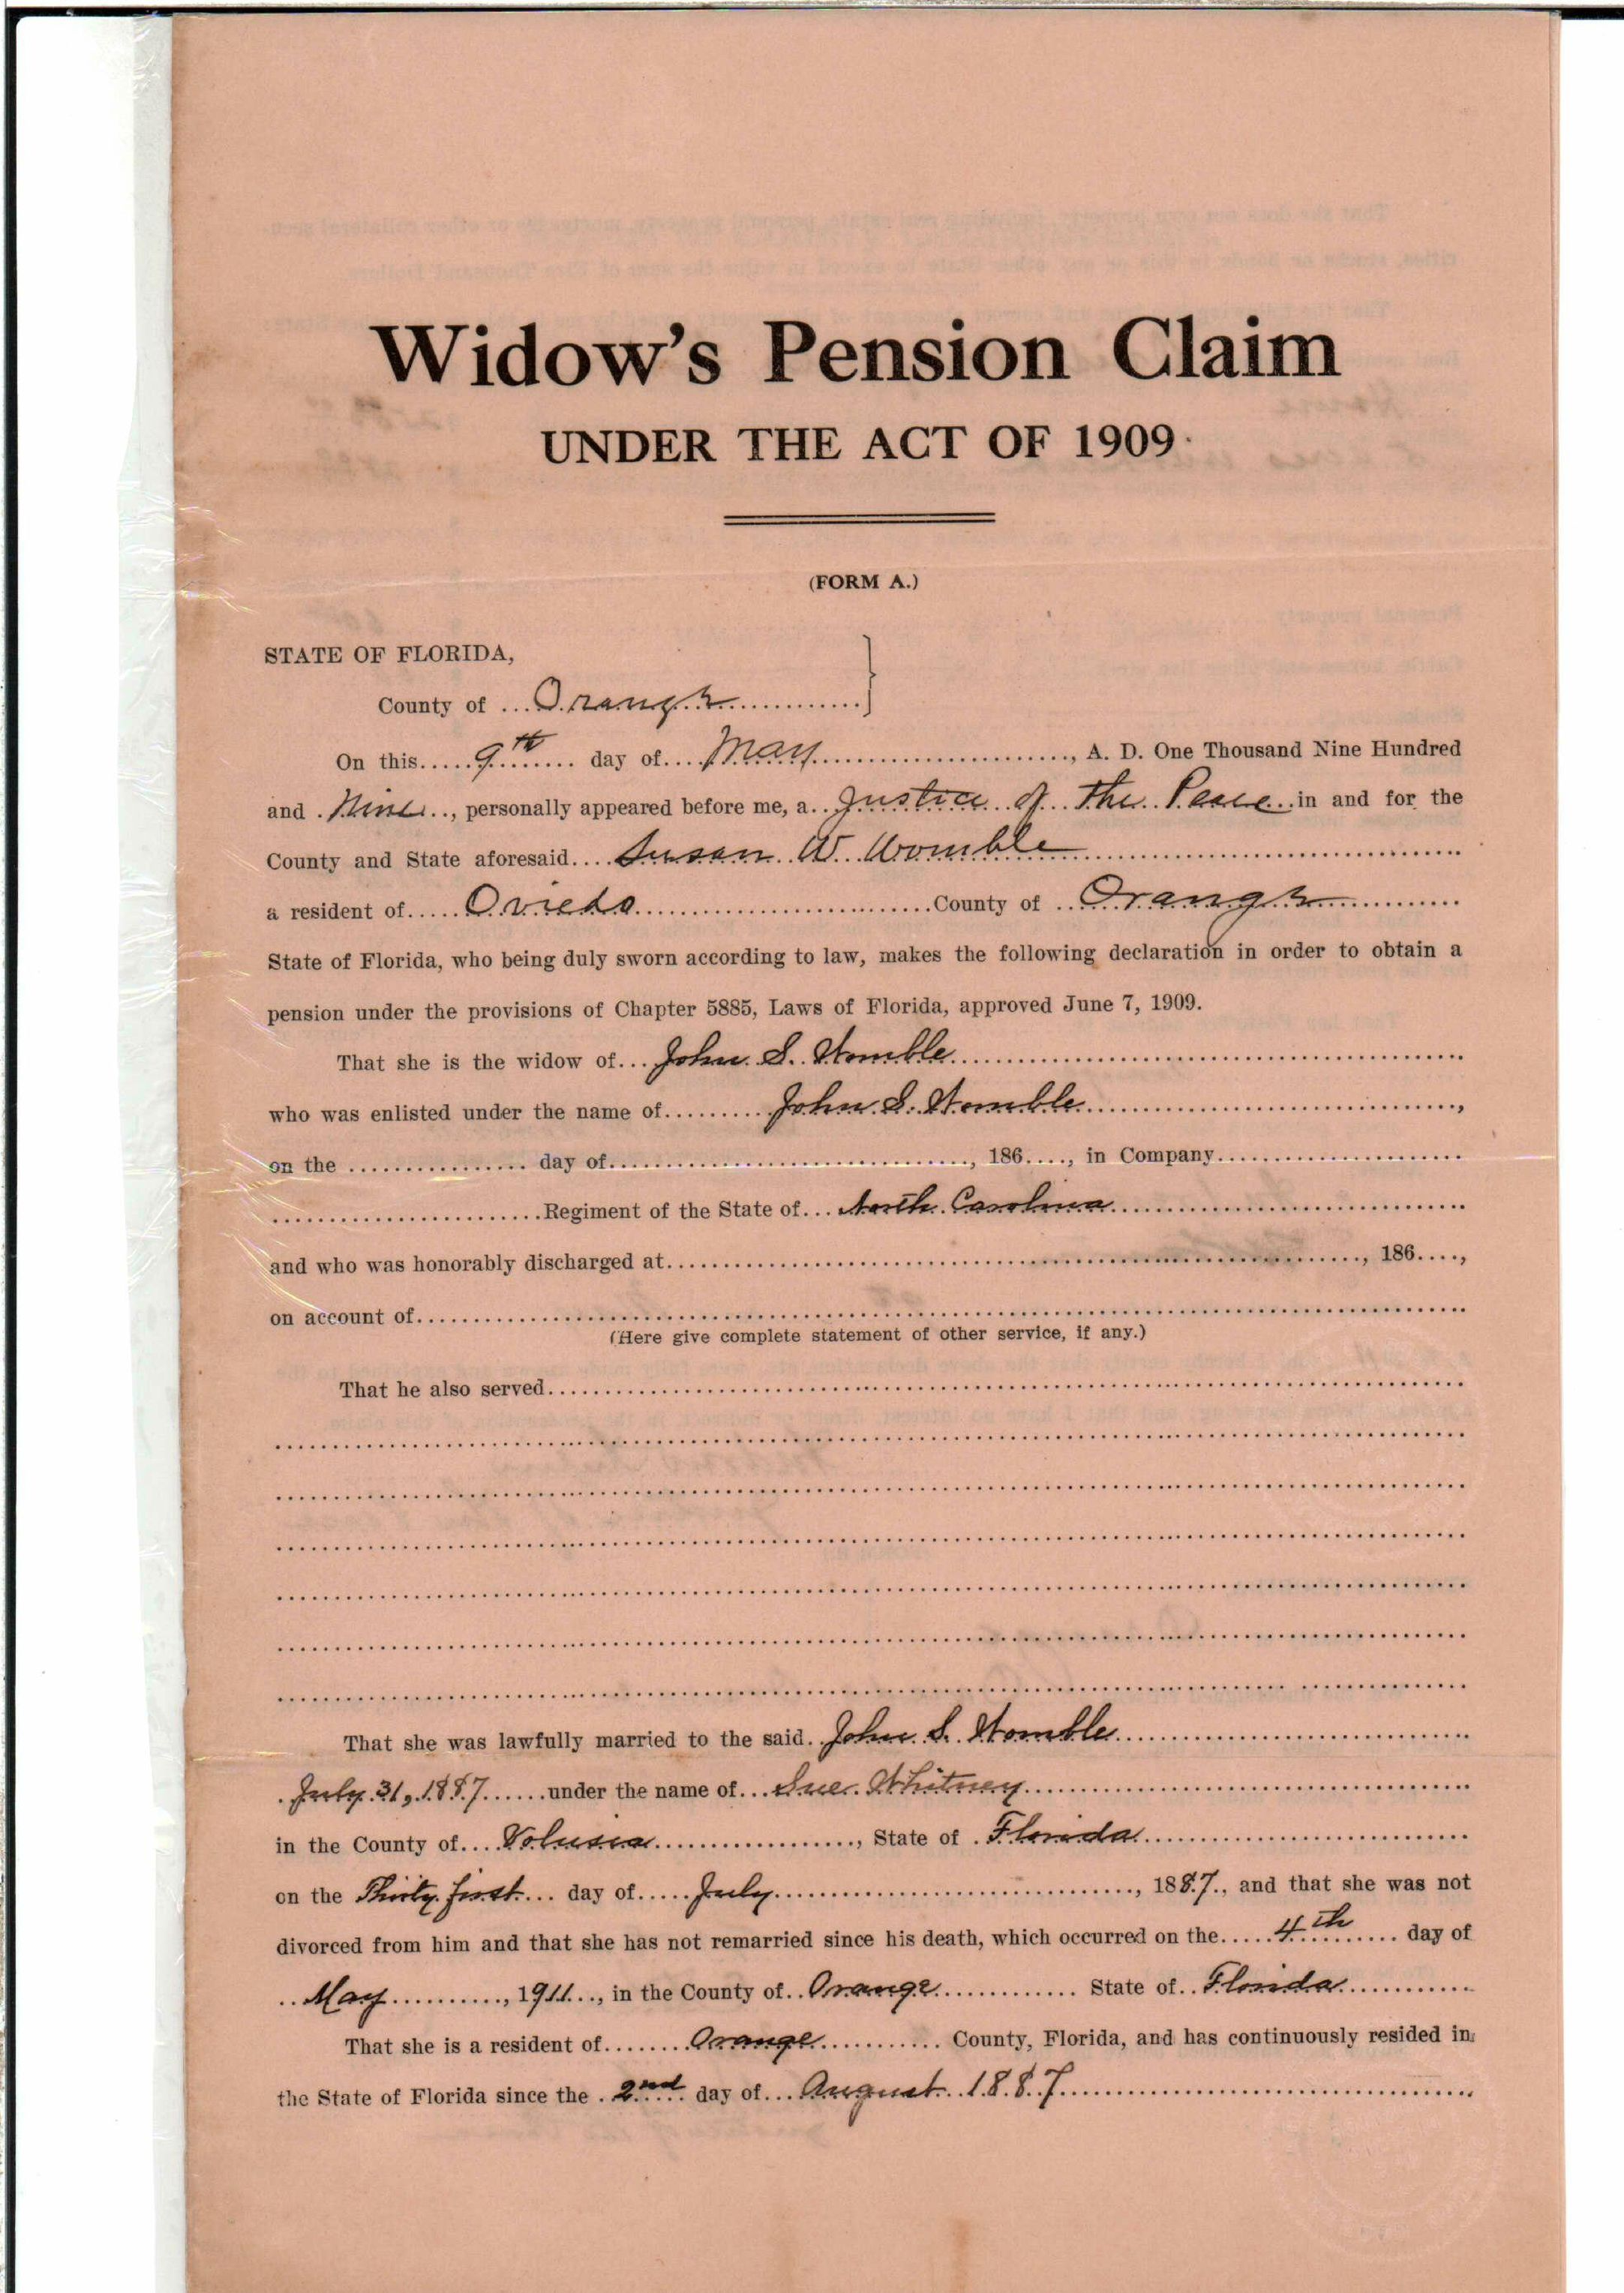 Widow's Pension Claim
UNDER THE ACT OF 1909
(FORM A.)
STATE OF FLORIDA,
County of Orange
On this 9th day of May, A. D. One Thousand Nine Hundred
and Nine, personally appeared before me, a Justice of the Peace in and for the
County and State aforesaid Susan W. Womble
a resident of Oviedo County of Orange
State of Florida, who being duly sworn according to law, makes the following declaration in order to obtain a
pension under the provisions of Chapter 5885, Laws of Florida, approved June 7, 1909.
That she is the widow of John S. Womble
who was enlisted under the name of John S. Womble,
on the day of , 186 , in Company
Regiment of the State of North Carolina
and who was honorably discharged at , 186 ,
on account of
(Here give complete statement of other service, if any.)
That he also served
That she was lawfully married to the said John S. Womble
July 31, 1887 under the name of Sue Whitney
in the County of Volusia, State of Florida
on the Thirty first day of July, 1887, and that she was not
divorced from him and that she has not remarried since his death, which occurred on the 4th day of
May, 1911, in the County of Orange State of Florida
That she is a resident of Orange County, Florida, and has continuously resided in
the State of Florida since the 2nd day of August 1887